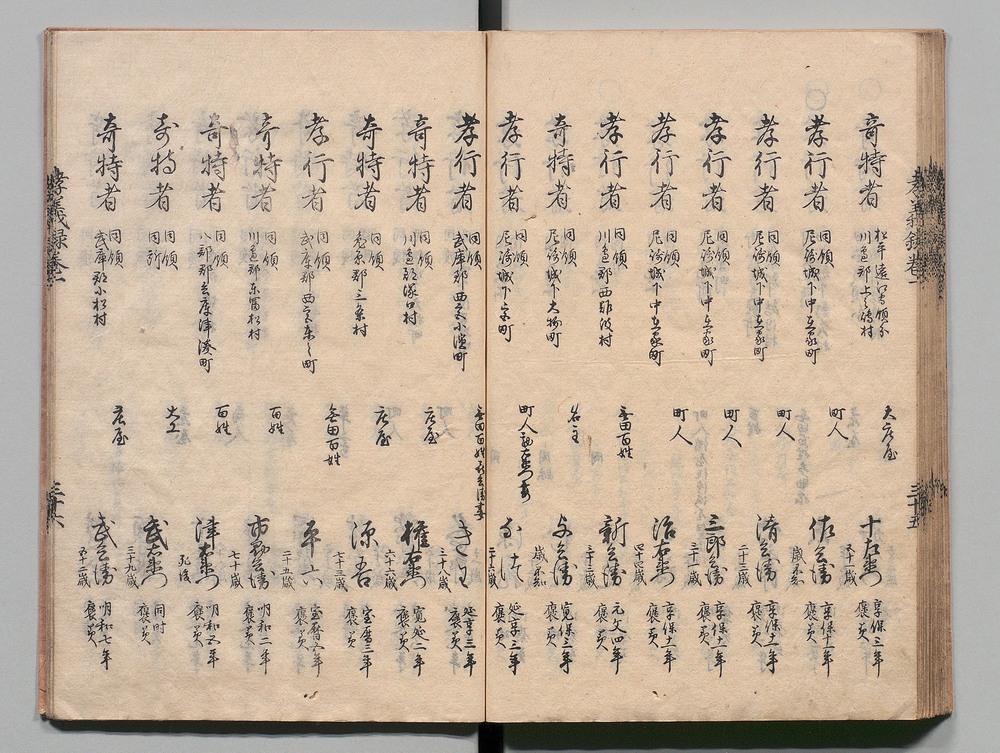 奇特者 松平遠江守領分 川邊郡上之嶋村 大庄屋 十右衛門 五十一歳 享保三年 褒美
孝行者 同領 尼崎城下中在家町 町人 佐兵衛 歳不知 享保十一年 褒美
孝行者 同領 尼崎城下中在家町 町人 清兵衛 二十三歳 享保十一年 褒美
孝行者 同領 尼崎城下中在家町 町人 三郎兵衛 三十一歳 享保十一年 褒美
孝行者 同領 尼崎城下中在家町 町人 治右衛門 四十四歳 享保十一年 褒美
孝行者 同領 川邊郡西難波村 無田百姓 新兵衛 三十三歳 元文四年 褒美
奇特者 同領 尼崎城下大物町 名主 与兵衛 歳不知 寛保三年 褒美
孝行者 同領 尼崎城下 町 町人 右衛門妻 二十六歳 延享三年 褒美
孝行者 同領 武庫郡西宮小濱町 無田百姓 兵衛妻 三十八歳 延享三年 褒美
奇特者 同領 川邊郡塚口村 庄屋 権右衛門 六十六歳 寛延二年 褒美
奇特者 同領 菟原郡三条村 庄屋 源吾 七十三歳 宝暦三年 褒美
孝行者 同領 武庫郡西宮東之町 無田百姓 平六 二十五歳 宝暦五年 褒美
奇特者 同領 川邊郡東富松村 百姓 市郎兵衛 七十歳 明和二年 褒美
奇特者 同領 八部郡兵庫津湊町 百姓 津右衛門 死後 明和五年 褒美
奇特者 同領 同所 大工 武右衛門 三十九歳 同時 褒美
奇特者 同領 武庫郡小松村 庄屋 武兵衛 五十二歳 明和七年 褒美
孝義録巻
三十五
孝義録巻
三十六